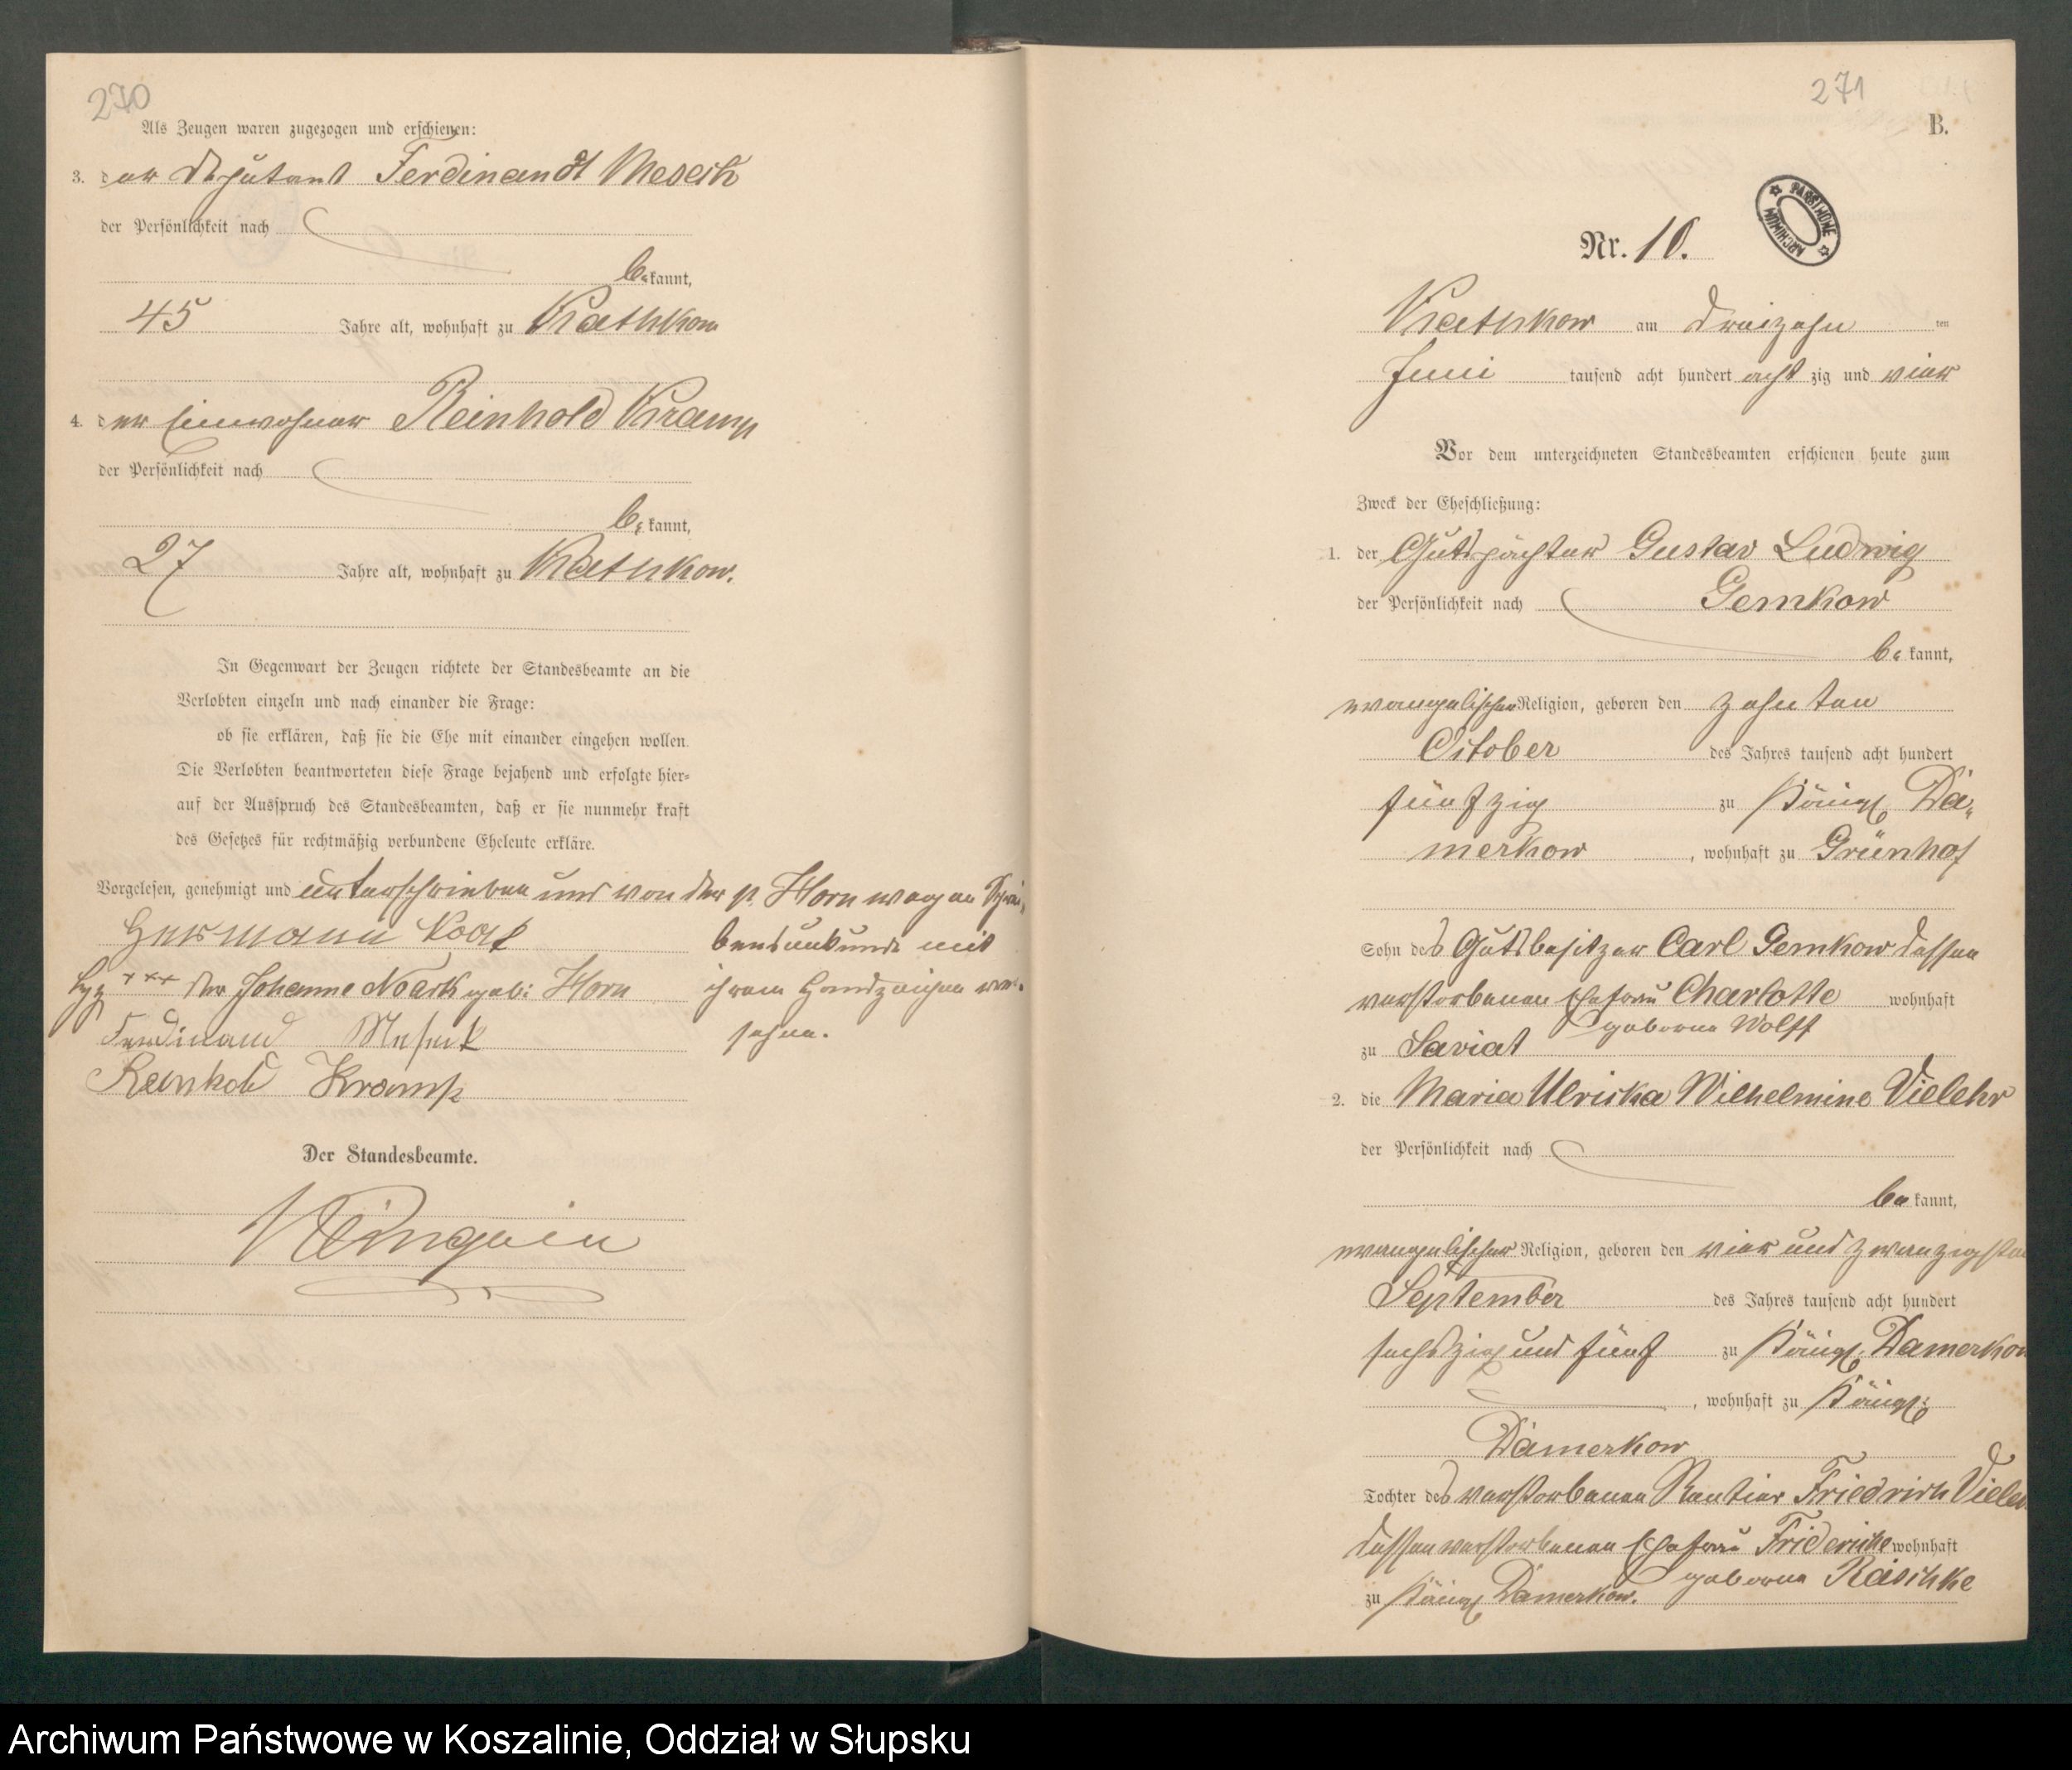 270
Als Zeugen waren zugezogen und erschienen:
3. der Deputant Ferdinandt Mesech
der Persönlichkeit nach
be kannt,
45 Jahre alt, wohnhaft zu Kathkow
4. der Einwohner Reinhold Kramp
der Persönlichkeit nach
be kannt,
27 Jahre alt, wohnhaft zu Kathkow.
In Gegenwart der Zeugen richtete der Standesbeamte an die
Verlobten einzeln und nach einander die Frage:
ob sie erklären, daß sie die Ehe mit einander eingehen wollen.
Die Verlobten beantworteten diese Frage bejahend und erfolgte hier-
auf der Ausspruch des Standesbeamten, daß er sie nunmehr kraft
des Gesetzes für rechtmäßig verbundene Eheleute erkläre.
Vorgelesen, genehmigt und unterschrieben und von der p. Horn wegen Schrei-
bensunkunde mit
ihrem Handzeichen ver-
sehen.
Hermann
Hz +++ der Johanne Noack geb: Horn
Ferdinand
Reinhold Kramp
Der Standesbeamte.
271
B.
ARCHIWUM PAŃSTWOWE
Nr. 10.
Kathkow am dreizehn ten
Juni tausend acht hundert acht zig und vier
Vor dem unterzeichneten Standesbeamten erschienen heute zum
Zweck der Eheschließung:
1. der Gutspächter Gustav Ludwig
der Persönlichkeit nach Gemkow
be kannt,
evangelischer Religion, geboren den zehnten
October des Jahres tausend acht hundert
fünfzig zu Königl. Da-
merkow, wohnhaft zu Grünhof
Sohn des Gutsbesitzer Carl Gemkow dessen
verstorbenen Ehefrau Charlotte wohnhaft
geborne Wolff
zu Saviat
2. die Maria Ulricka Wilhelmine Vielehr
der Persönlichkeit nach
be kannt,
evangelischer Religion, geboren den vier und zwanzigsten
September des Jahres tausend acht hundert
sechszig und fünf zu Königl. Damerkow
, wohnhaft zu Königl.
Damerkow
Tochter des verstorbenen Rentier Friedrich Vieleh
dessen verstorbenen Ehefrau Friedericke wohnhaft
geborne Raschke
zu Königl Damerkow.
Archiwum Państwowe w Koszalinie, Oddział w Słupsku